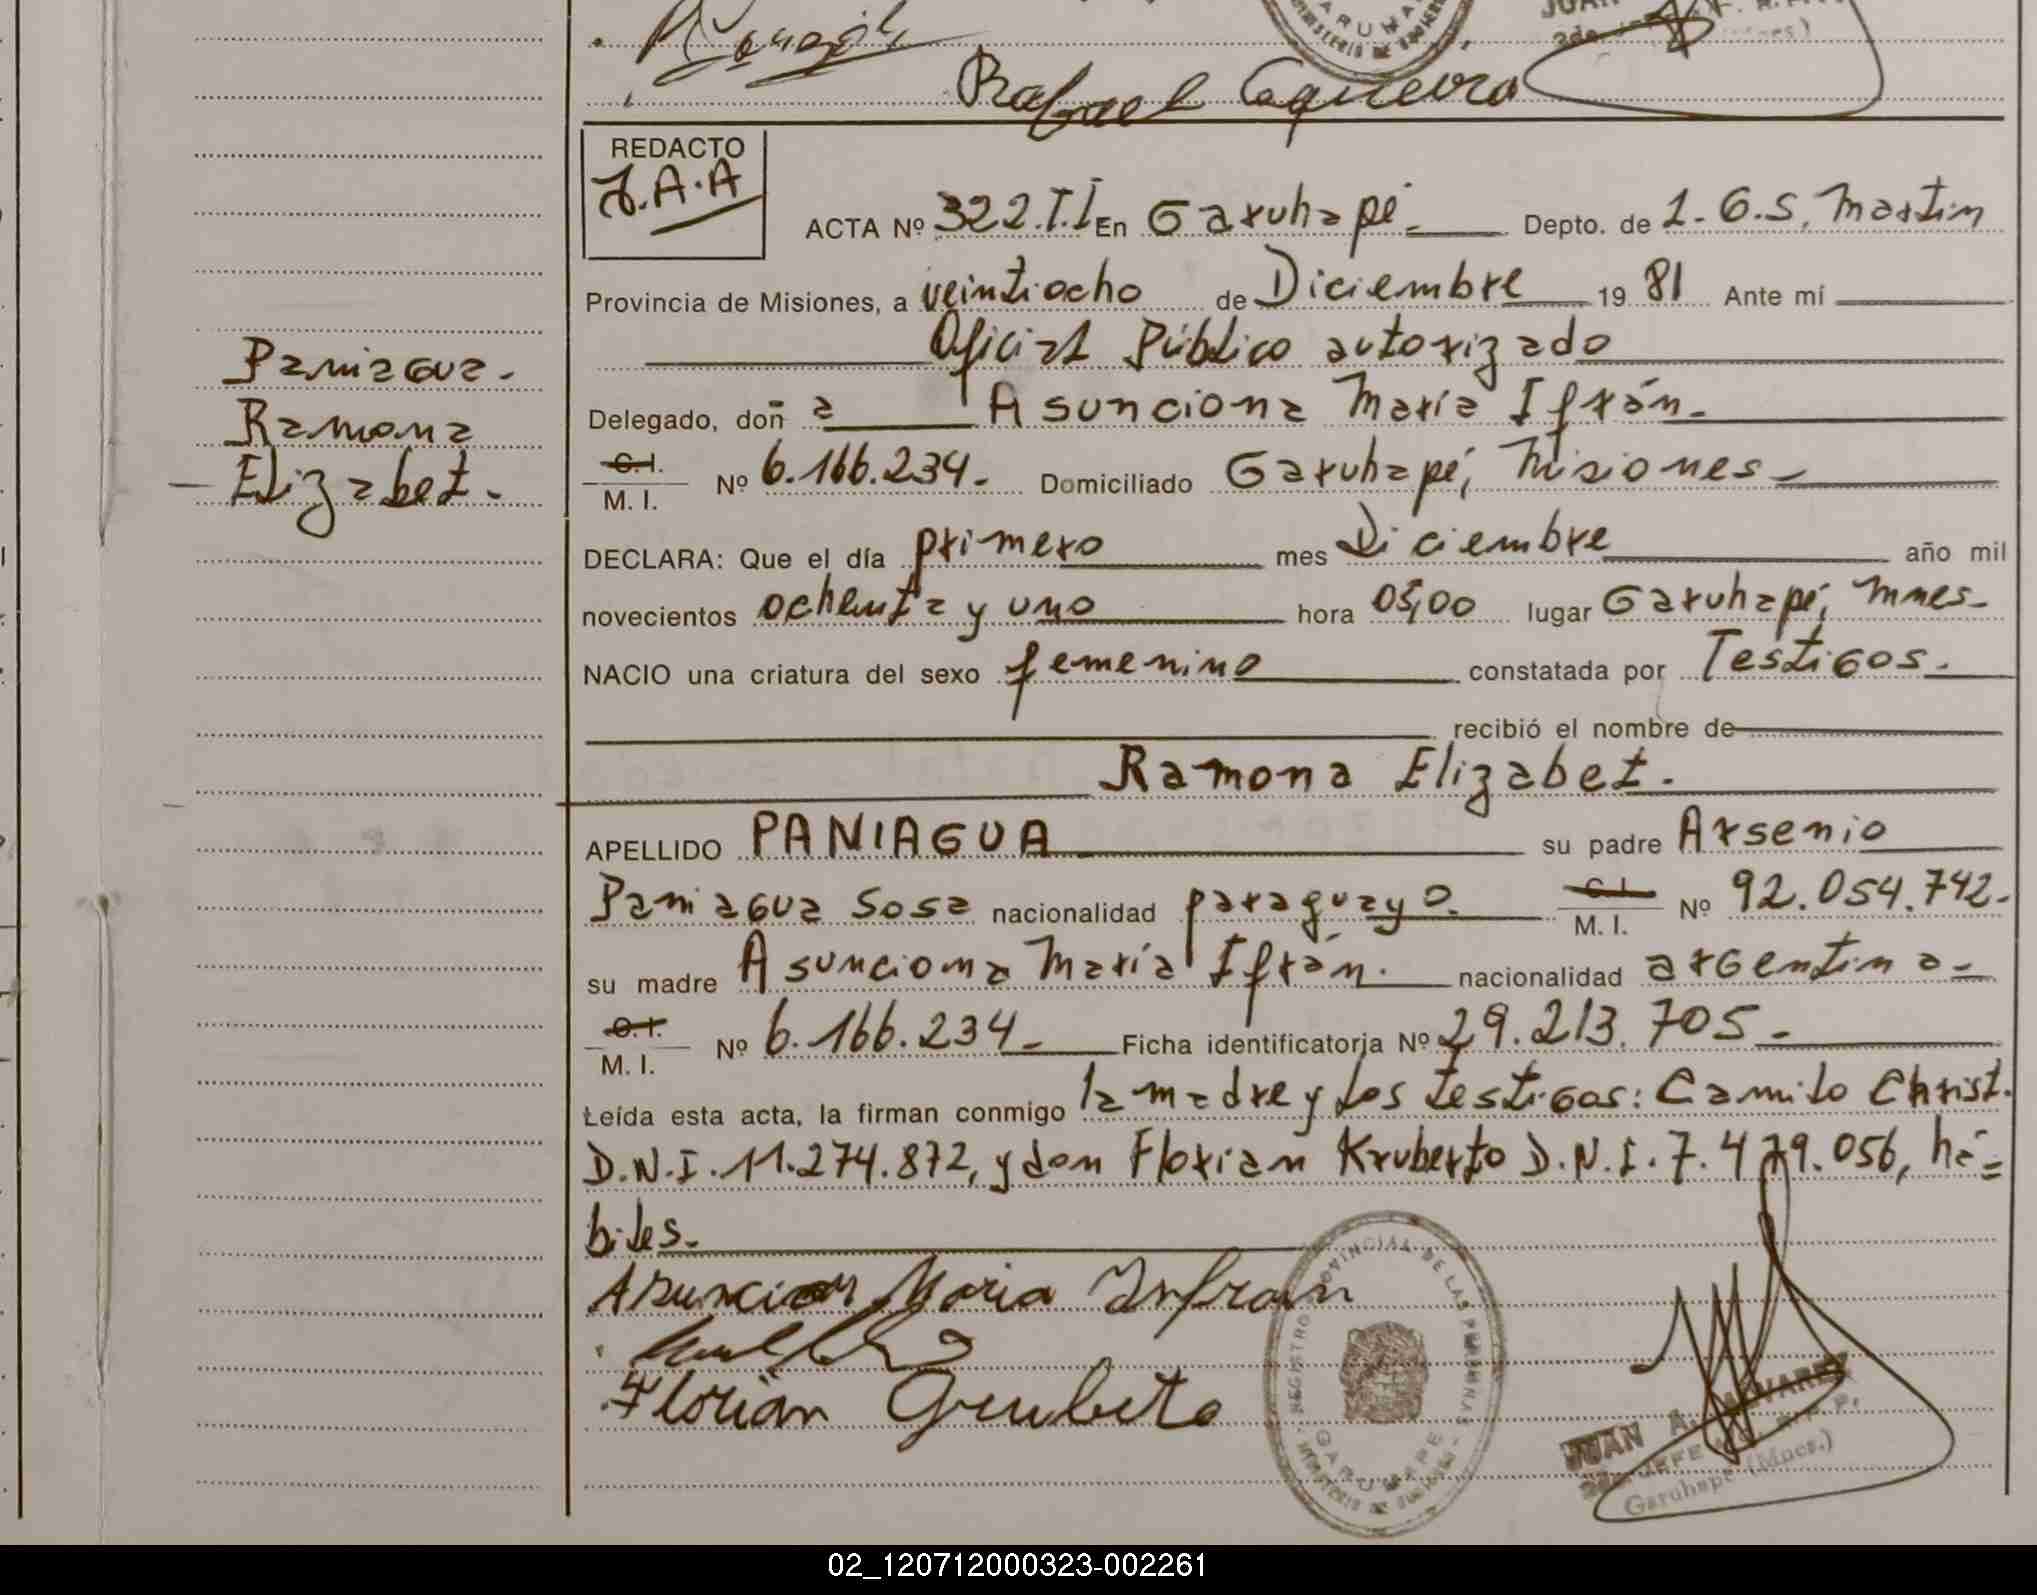 Rafael
REDACTO
J.A.A
ACTA Nº 322.T.I En Garuhapé. Depto. de L.G.S. Martin
Provincia de Misiones, a veintiocho de Diciembre 19 81 Ante mí
Oficial Público autorizado
Delegado, don a Asunciona María Ifrán.
C.I. M. I. Nº 6.166.234. Domiciliado Garuhapé, Misiones
DECLARA: Que el día primero mes Diciembre año mil
novecientos ochenta y uno hora 05,00 lugar Garuhapé, Mnes.
NACIO una criatura del sexo femenino constatada por Testigos.
recibió el nombre de
Ramona Elizabet.
APELLIDO PANIAGUA su padre Arsenio
Paniagua Sosa nacionalidad paraguayo. C.I. M. I. Nº 92.054.742.
su madre Asunciona María Ifrán. nacionalidad argentina
C.I. M. I. Nº 6.166.234 Ficha identificatoria Nº 29.213.705
Leída esta acta, la firman conmigo la madre y los testigos: Camilo Christ.
D.N.I. 11.274.872, y don Florian Kruberto D.N.I. 7.479.056, há=
biles.
Paniagua.
Ramona
Elizabet.
Maria Infran
Florian
REGISTRO PROVINCIAL DE LAS PERSONAS
GARUHAPE
JUAN A. ALVAREZ
2do. JEFE
Garuhapé (Mnes.)
02_120712000323-002261